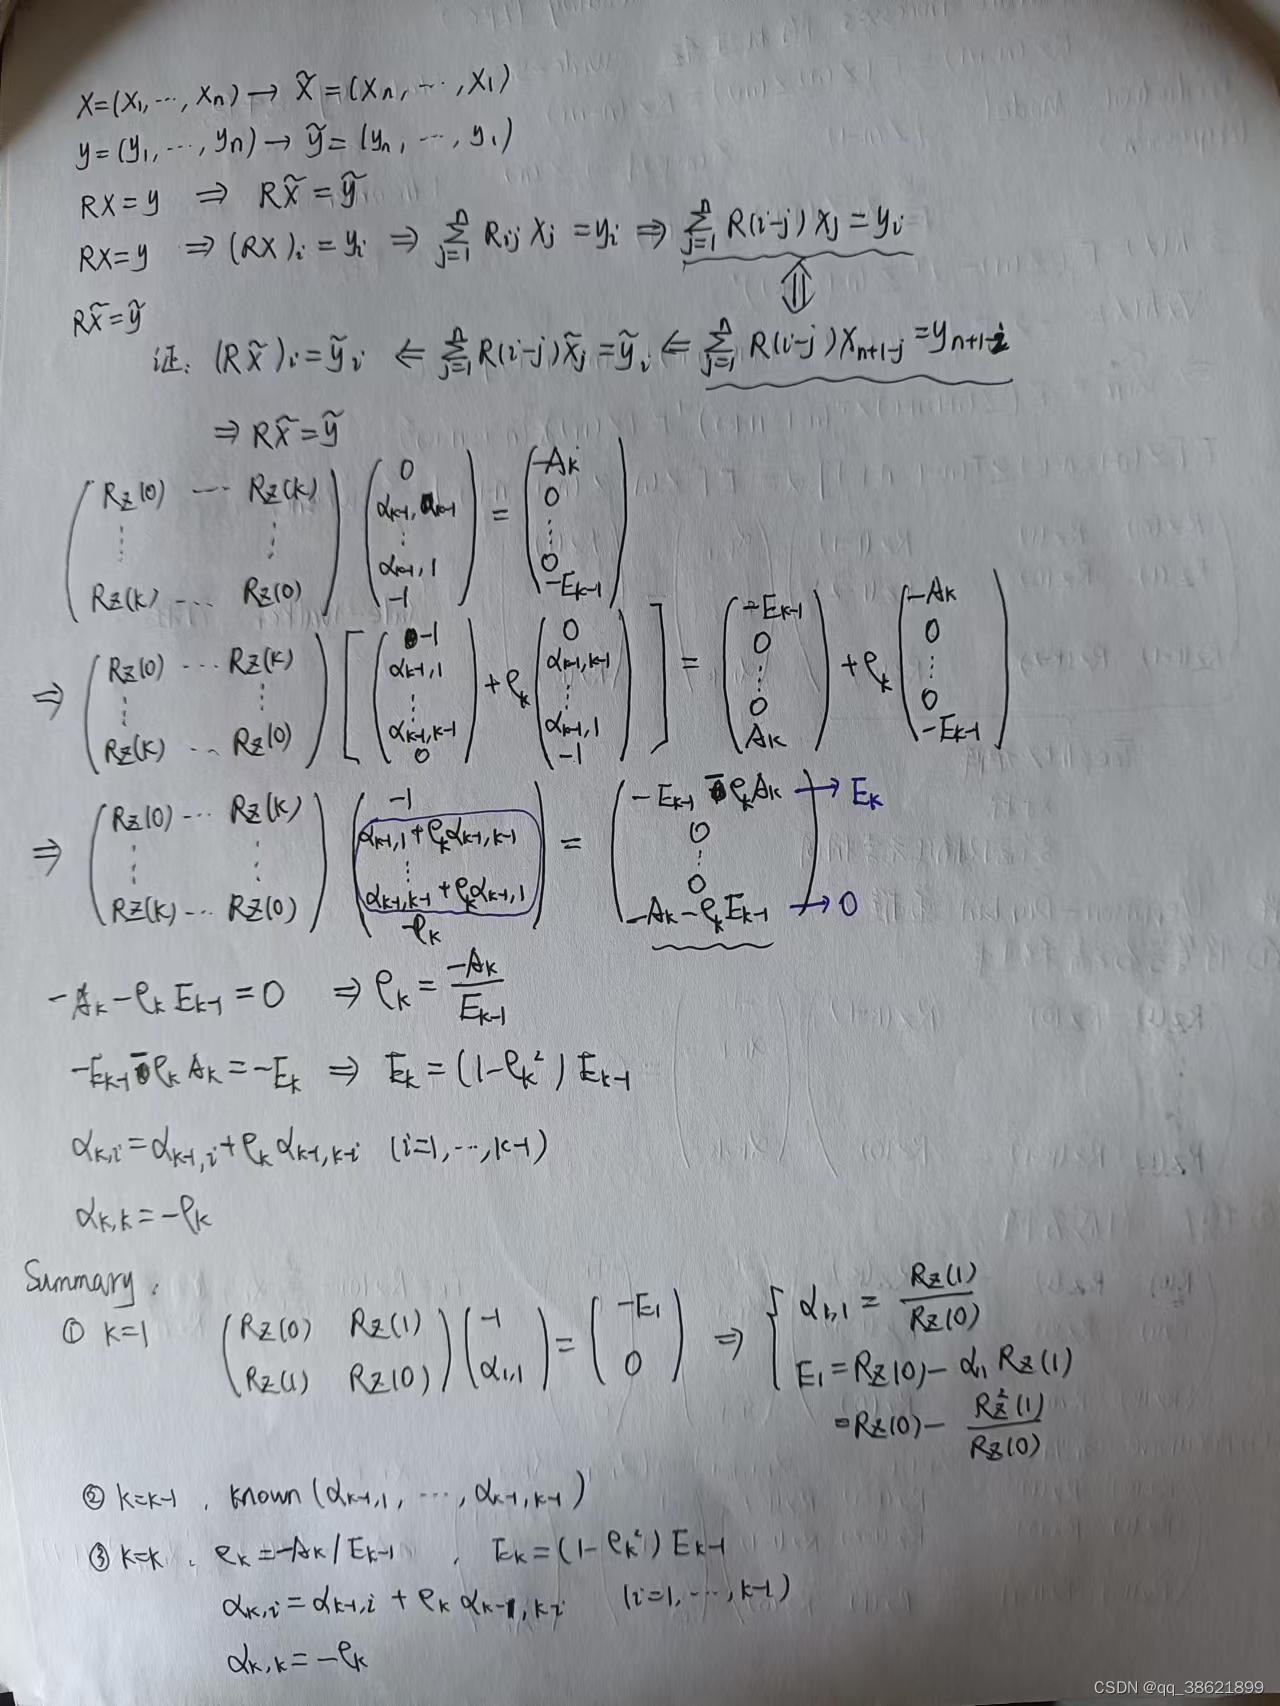 X=(X₁,⋯,Xn)→ X̃=(Xn,⋯,X₁)
y=(y₁,⋯,yn)→ ỹ=(yn,⋯,y₁)
RX=y ⇒ RX̃=ỹ
RX=y ⇒(RX)i=yi ⇒ ∑_{j=1}^{n} Rij Xj=yi ⇒ ∑_{j=1}^{n} R(i-j)Xj=yi
⇕
RX̃=ỹ
证: (RX̃)i=ỹi ⇐ ∑_{j=1}^{n} R(i-j)X̃j=ỹi ⇐ ∑_{j=1}^{n} R(i-j)X_{n+1-j}=y_{n+1-i}
⇒ RX̃=ỹ
(Rz(0) ⋯ Rz(k); ⋮ ⋮; Rz(k) ⋯ Rz(0)) (0; α_{k-1,k-1}; ⋮; α_{k-1,1}; -1) = (-Ak; 0; ⋮; 0; -E_{k-1})
⇒ (Rz(0) ⋯ Rz(k); ⋮ ⋮; Rz(k) ⋯ Rz(0)) [(-1; α_{k-1,1}; ⋮; α_{k-1,k-1}; 0) + ρk (0; α_{k-1,k-1}; ⋮; α_{k-1,1}; -1)] = (-E_{k-1}; 0; ⋮; 0; Ak) + ρk (-Ak; 0; ⋮; 0; -E_{k-1})
⇒ (Rz(0) ⋯ Rz(k); ⋮ ⋮; Rz(k) ⋯ Rz(0)) (-1; α_{k-1,1}+ρkα_{k-1,k-1}; ⋮; α_{k-1,k-1}+ρkα_{k-1,1}; -ρk) = (-E_{k-1}-ρkAk; 0; ⋮; 0; -Ak-ρkE_{k-1}) → Ek → 0
-Ak-ρkE_{k-1}=0 ⇒ ρk = -Ak/E_{k-1}
-E_{k-1}-ρkAk=-Ek ⇒ Ek=(1-ρk²)E_{k-1}
α_{k,i}=α_{k-1,i}+ρkα_{k-1,k-i} (i=1,⋯,k-1)
α_{k,k}=-ρk
Summary:
① k=1 (Rz(0) Rz(1); Rz(1) Rz(0)) (-1; α_{1,1}) = (-E₁; 0) ⇒ { α_{1,1} = Rz(1)/Rz(0)
E₁=Rz(0)-α₁Rz(1)
=Rz(0)- Rz²(1)/Rz(0)
② k=k-1, known (α_{k-1,1},⋯,α_{k-1,k-1})
③ k=k, ρk=-Ak/E_{k-1}, Ek=(1-ρk²)E_{k-1}
α_{k,i}=α_{k-1,i}+ρkα_{k-1,k-i} (i=1,⋯,k-1)
α_{k,k}=-ρk
CSDN @qq_38621899